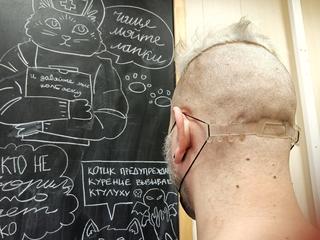 Чаще
мойте
лапки
и давайте мне
колбаску
КТО НЕ
КОТИК ПРЕДУПРЕЖД
КУРЕНИЕ ВЫЗЫВАЕ
КТУЛХУ